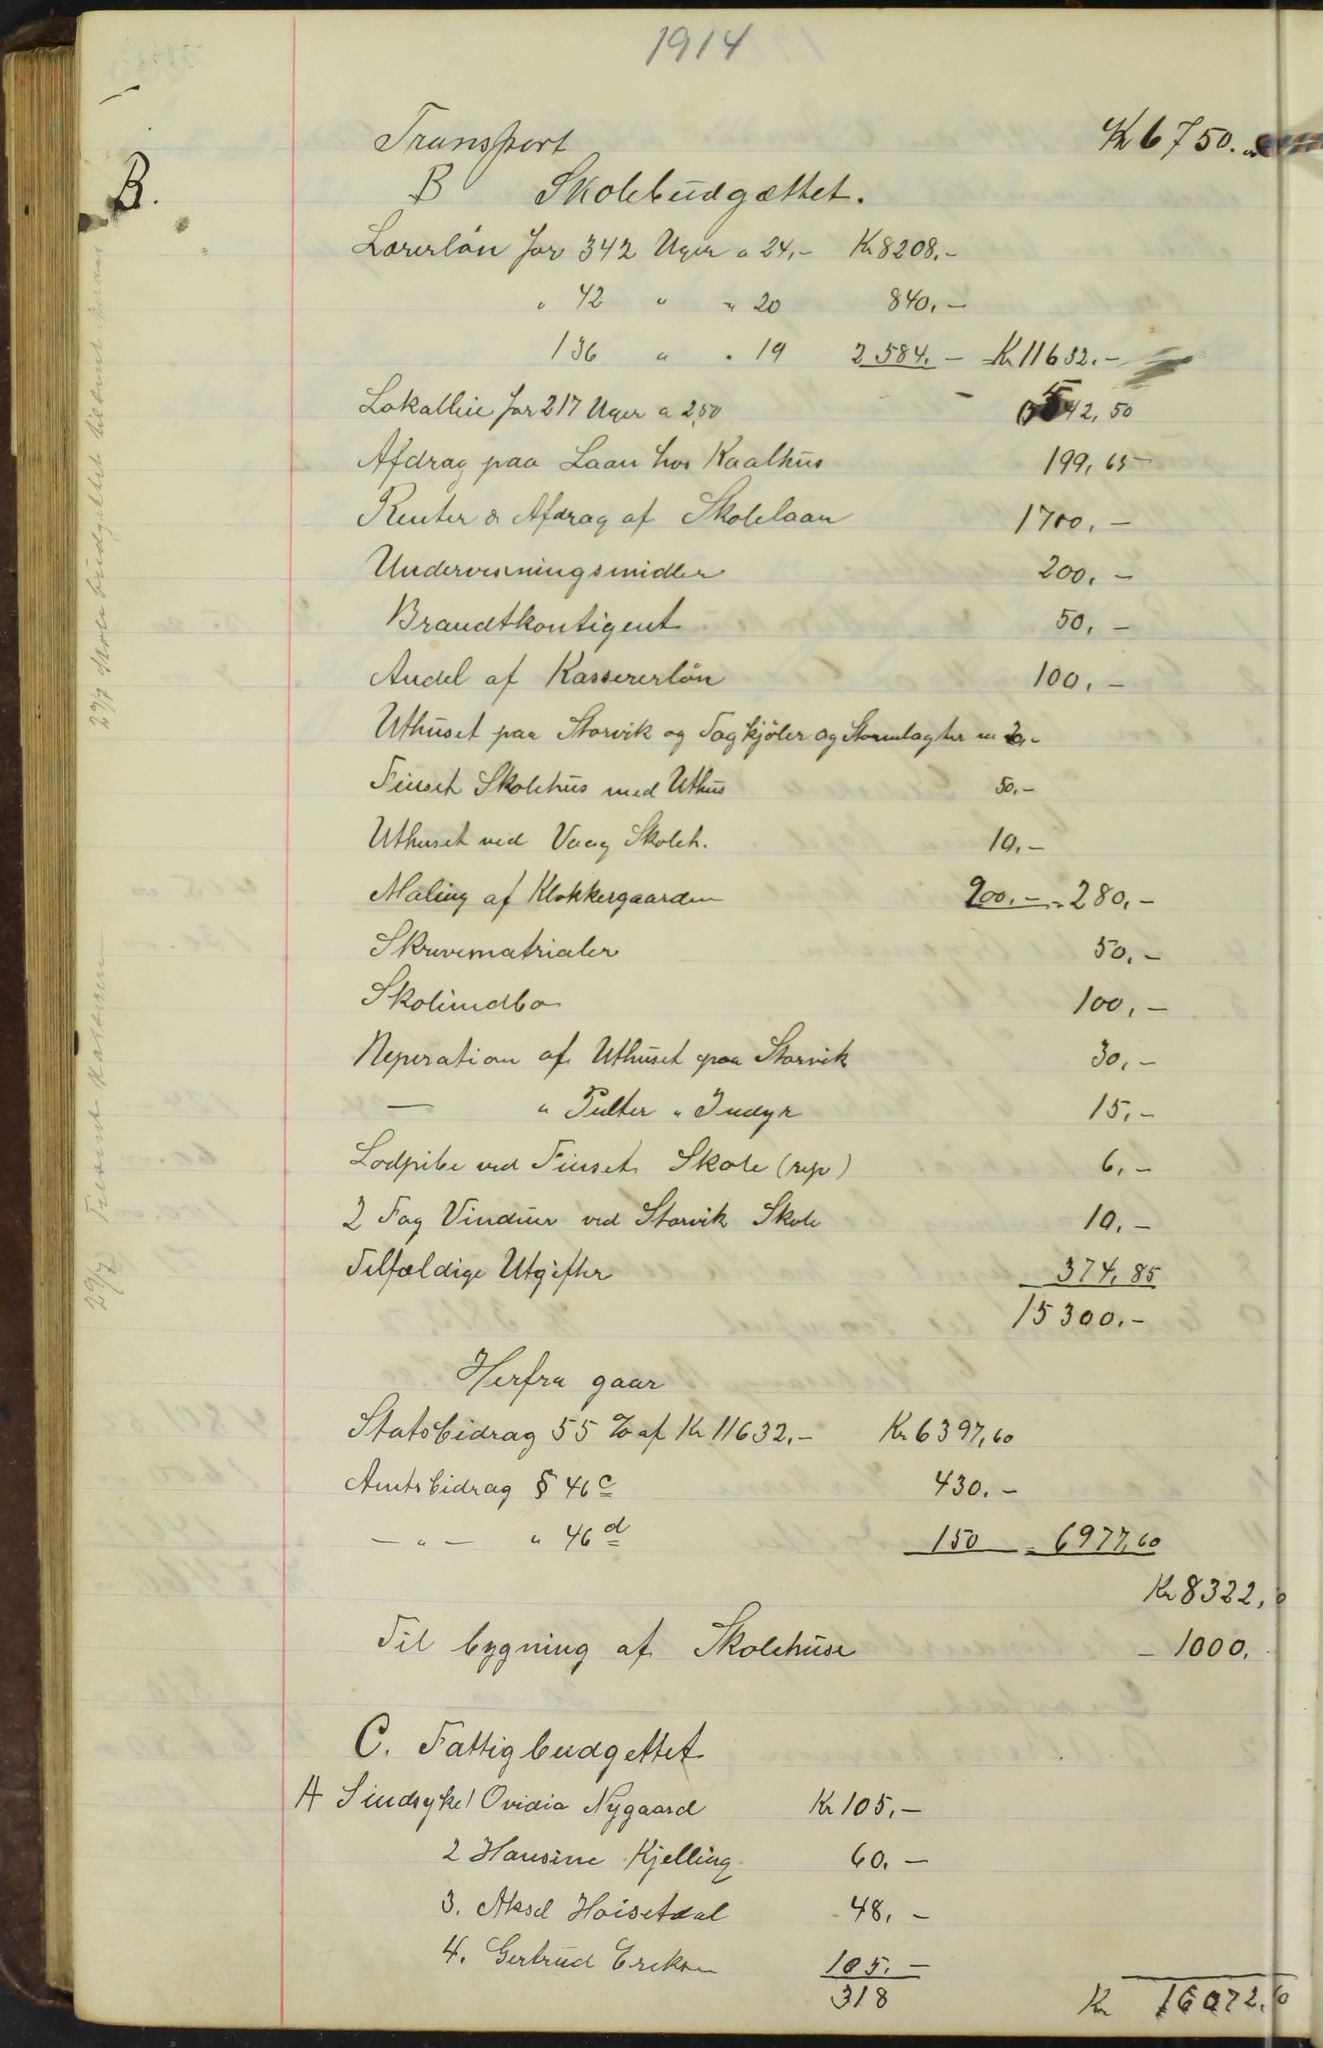 1914
Transport Kr 6750.
B.
B Skolebudgættet.
Lærerløn for 342 Uger a 24,- Kr 8208.-
" 42 " " 20 840,-
136 " " 19 2584.- Kr 11632.-
Lokalleie for 217 Uger a 2,50 542,50
Afdrag paa Laan hos Kaalhus 199,65
Renter & Afdrag af Skolelaan 1700,-
Undervisningsmidler 200,-
Brandtkontigent 50,-
Andel af Kassererløn 100,-
Uthuset paa Storvik og Tagkjöler og Stormlagter 20,-
Finset Skolehus med Uthus 50,-
Uthuset ved Vaag Skoleh. 10,-
Maling af Klokkergaarden 200,- - 280,-
Skrivematrialer 50,-
Skolindbo 100,-
Reperation af Uthuset paa Storvik 30,-
— " Pulter " Indyr 15,-
Lodpibe ved Finset Skole (rep) 6,-
2 Fag Vinduer ved Storvik Skole 10,-
Tilfældige Utgifter 374,85
15300,-
Herfra gaar
Statsbidrag 55 % af Kr 11632,- Kr 6397,60
Amtsbidrag § 46 c 430.-
- " - " 46 d 150 = 6977,60
Kr 8322,
Til bygning af Skolehuse - 1000.
C. Fattigbudgettet
A Sindsyke 1 Ovidia Nygaard Kr 105,-
2 Hansine Kjelling 60.-
3. Aksel Hoisetdal 48,-
4. Gertrud Eriksen 105.-
318
Kr 16072.
29/7 Skolebudgættet tilsent
29/7 Tilsent Kassereren